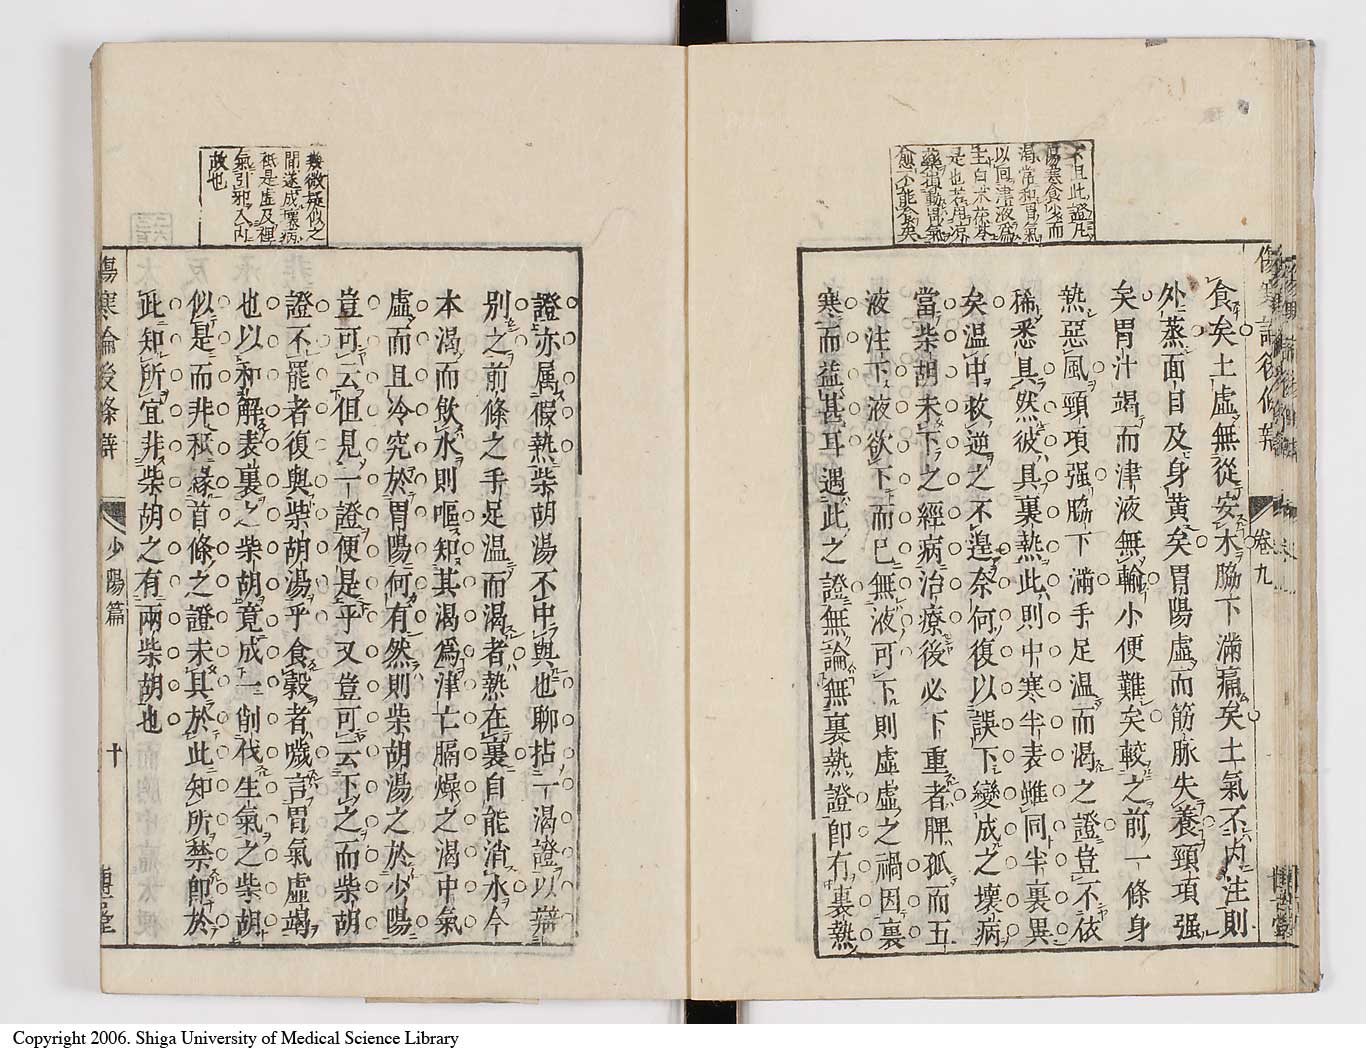 不且此證凡
傷寒食少而
渴當和胃氣
以回津液爲
主白朮茯苓
是也若用凉
藥損動胃氣
愈不能食矣
卷九
食矣土虛無從安木脇下滿痛矣土氣不內注則
外蒸面目及身黃矣胃陽虛而筋脉失養頸項强
矣胃汁竭而津液無輸小便難矣較之前一條身
熱惡風頸項强脇下滿手足温而渴之證豈不依
稀悉具然彼具裏熱此則中寒半表雖同半裏異
矣温中救逆之不遑奈何復以誤下變成之壞病
當柴胡未下之經病治療後必下重者脾孤而五
液注下液欲下而巳無液可下則虛虛之禍因裏
寒而益甚耳遇此之證無論無裏熱證卽有裏熱
幾微疑似之
間遂成壞病
秪是虛及裡
氣引邪入內
故也
證亦属假熱柴胡湯不中與也聊拈一渴證以辯
別之前條之手足温而渴者熱在裏自能消水今
本渴而飲水則嘔知其渴爲津亡膈燥之渴中氣
虛而且冷究於胃陽何有然則柴胡湯之於少陽
豈可云但見一證便是乎又豈可云下之而柴胡
證不罷者復與柴胡湯乎食穀者噦言胃氣虛竭
也以和解表裏之柴胡竟成一削伐生氣之柴胡
似是而非秪緣首條之證未具於此知所禁卽於
此知所宜非柴胡之有兩柴胡也
傷寒論後條辯
少陽篇
十